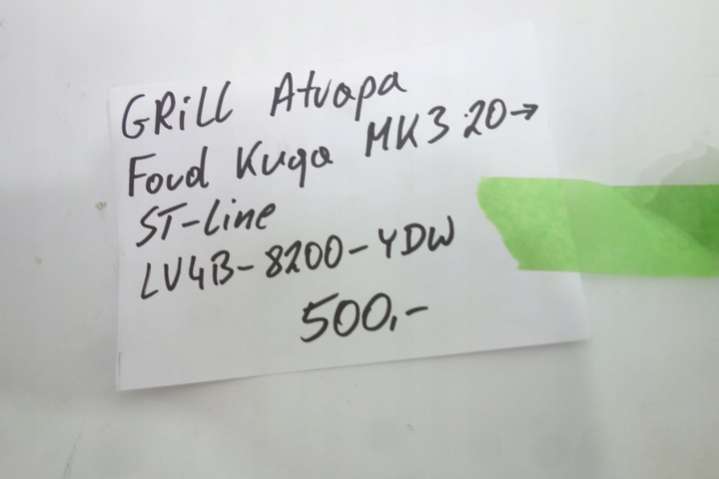 GRill Atrapa
Ford Kuga MK3 20→
ST-Line
LV4B-8200-YDW
500,-